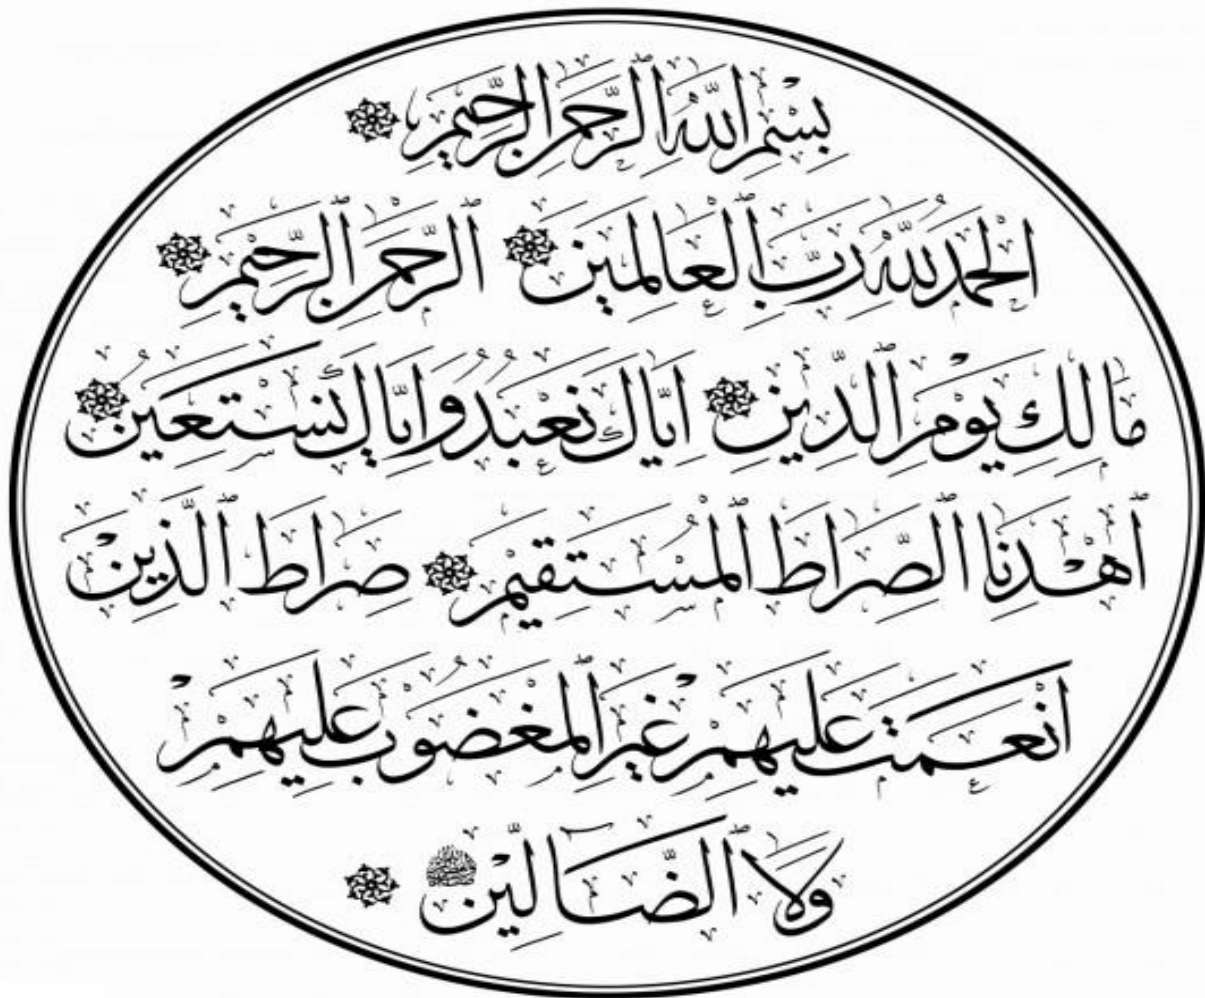 بِسْمِ اللّٰهِ الرَّحْمٰنِ الرَّحِيْمِ
اَلْحَمْدُ لِلّٰهِ رَبِّ الْعَالَمِيْنَ الرَّحْمٰنِ الرَّحِيْمِ
مَالِكِ يَوْمِ الدِّيْنِ اِيَّاكَ نَعْبُدُ وَاِيَّاكَ نَسْتَعِيْنُ
اِهْدِنَا الصِّرَاطَ الْمُسْتَقِيْمَ صِرَاطَ الَّذِيْنَ
اَنْعَمْتَ عَلَيْهِمْ غَيْرِ الْمَغْضُوْبِ عَلَيْهِمْ
وَلَا الضَّالِّيْنَ